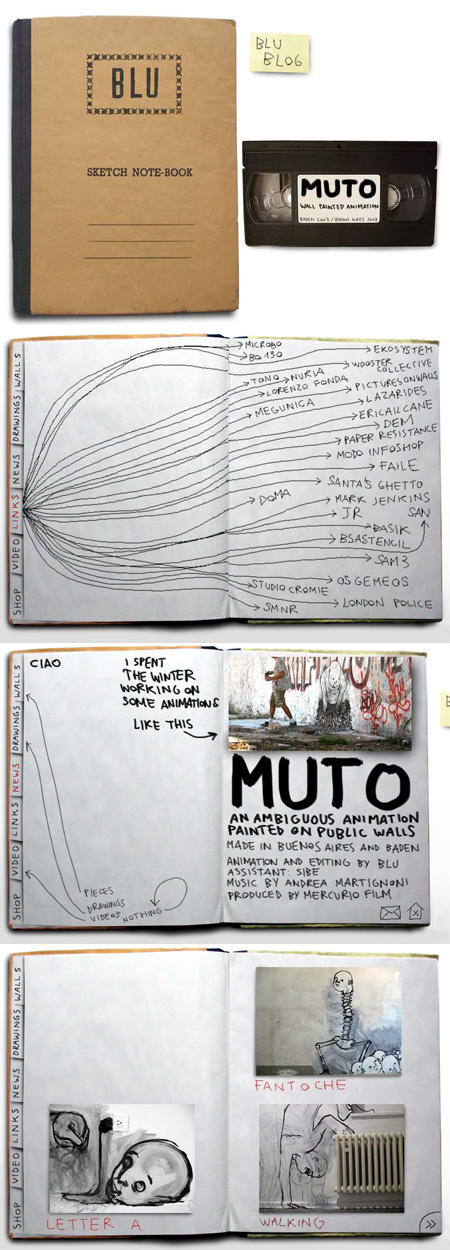 BLU
BLOG
BLU
SKETCH NOTE-BOOK
MUTO
WALL PAINTED ANIMATION
SHOP VIDEO LINKS NEWS DRAWINGS WALLS
MICROBO
BQ 130
EKOSYSTEM
WOOSTER
COLLECTIVE
TONO → NURIA
LORENZO FONDA
PICTURESONWALLS
MEGUNICA
LAZARIDES
ERICAILCANE
DEM
PAPER RESISTANCE
MODO INFOSHOP
FAILE
SANTA'S GHETTO
DOMA
MARK JENKINS
JR
SAN
BASIK
BSASTENCIL
SAM3
STUDIO CROMIE
OS GEMEOS
SMNR
LONDON POLICE
SHOP VIDEO LINKS NEWS DRAWINGS WALLS
CIAO
I SPENT
THE WINTER
WORKING ON
SOME ANIMATIONS
LIKE THIS
PIECES
DRAWINGS
VIDEOS NOTHING
MUTO
AN AMBIGUOUS ANIMATION
PAINTED ON PUBLIC WALLS
MADE IN BUENOS AIRES AND BADEN
ANIMATION AND EDITING BY BLU
ASSISTANT: SIBE
MUSIC BY ANDREA MARTIGNONI
PRODUCED BY MERCURIO FILM
SHOP VIDEO LINKS NEWS DRAWINGS WALLS
FANTOCHE
LETTER A
WALKING